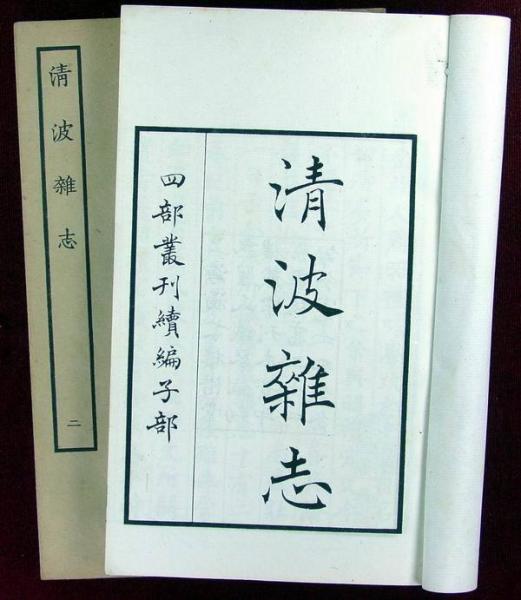 清波雜志
四部叢刊續編子部
清波雜志
二